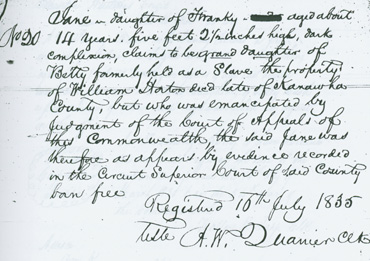 Jane a daughter of Franky - aged about
No 20 14 years. five feet 2½ inches high, dark
complexion, claims to be grand daughter of
Betty formerly held as a Slave the property
of William Horton died late of Kanawha
County, but who was emancipated by
Judgment of the Court of Appeals of
this Commonwealth, the said Jane was
therefore as appears by evidence recorded
in the Circuit Superior Court of said County
born free
Registered 10th July 1835
Teste A.W. Quarrier Clk